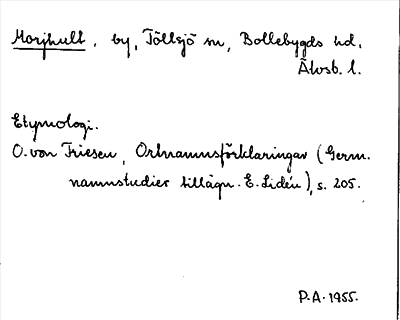 Morjhult, by, Töllsjö sn, Bollebygds hd,
Älvsb. l.
Etymologi.
O. von Friesen, Ortnamnsförklaringar (Germ.
namnstudier tillägn. E. Lidén), s. 205.
P.A. 1955.